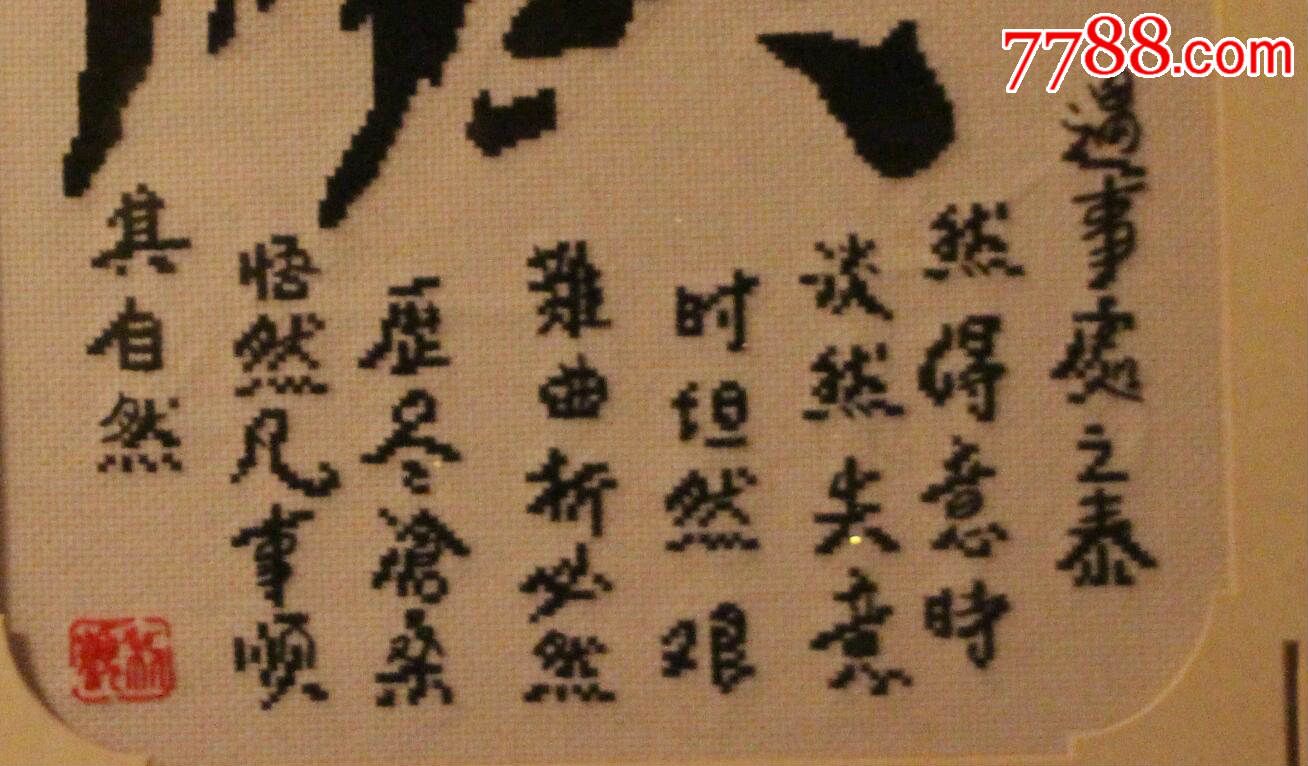 7788.com
遇事處之泰
然得意時
淡然失意
时坦然艰
難曲折必然
歷尽滄桑
悟然凡事順
其自然